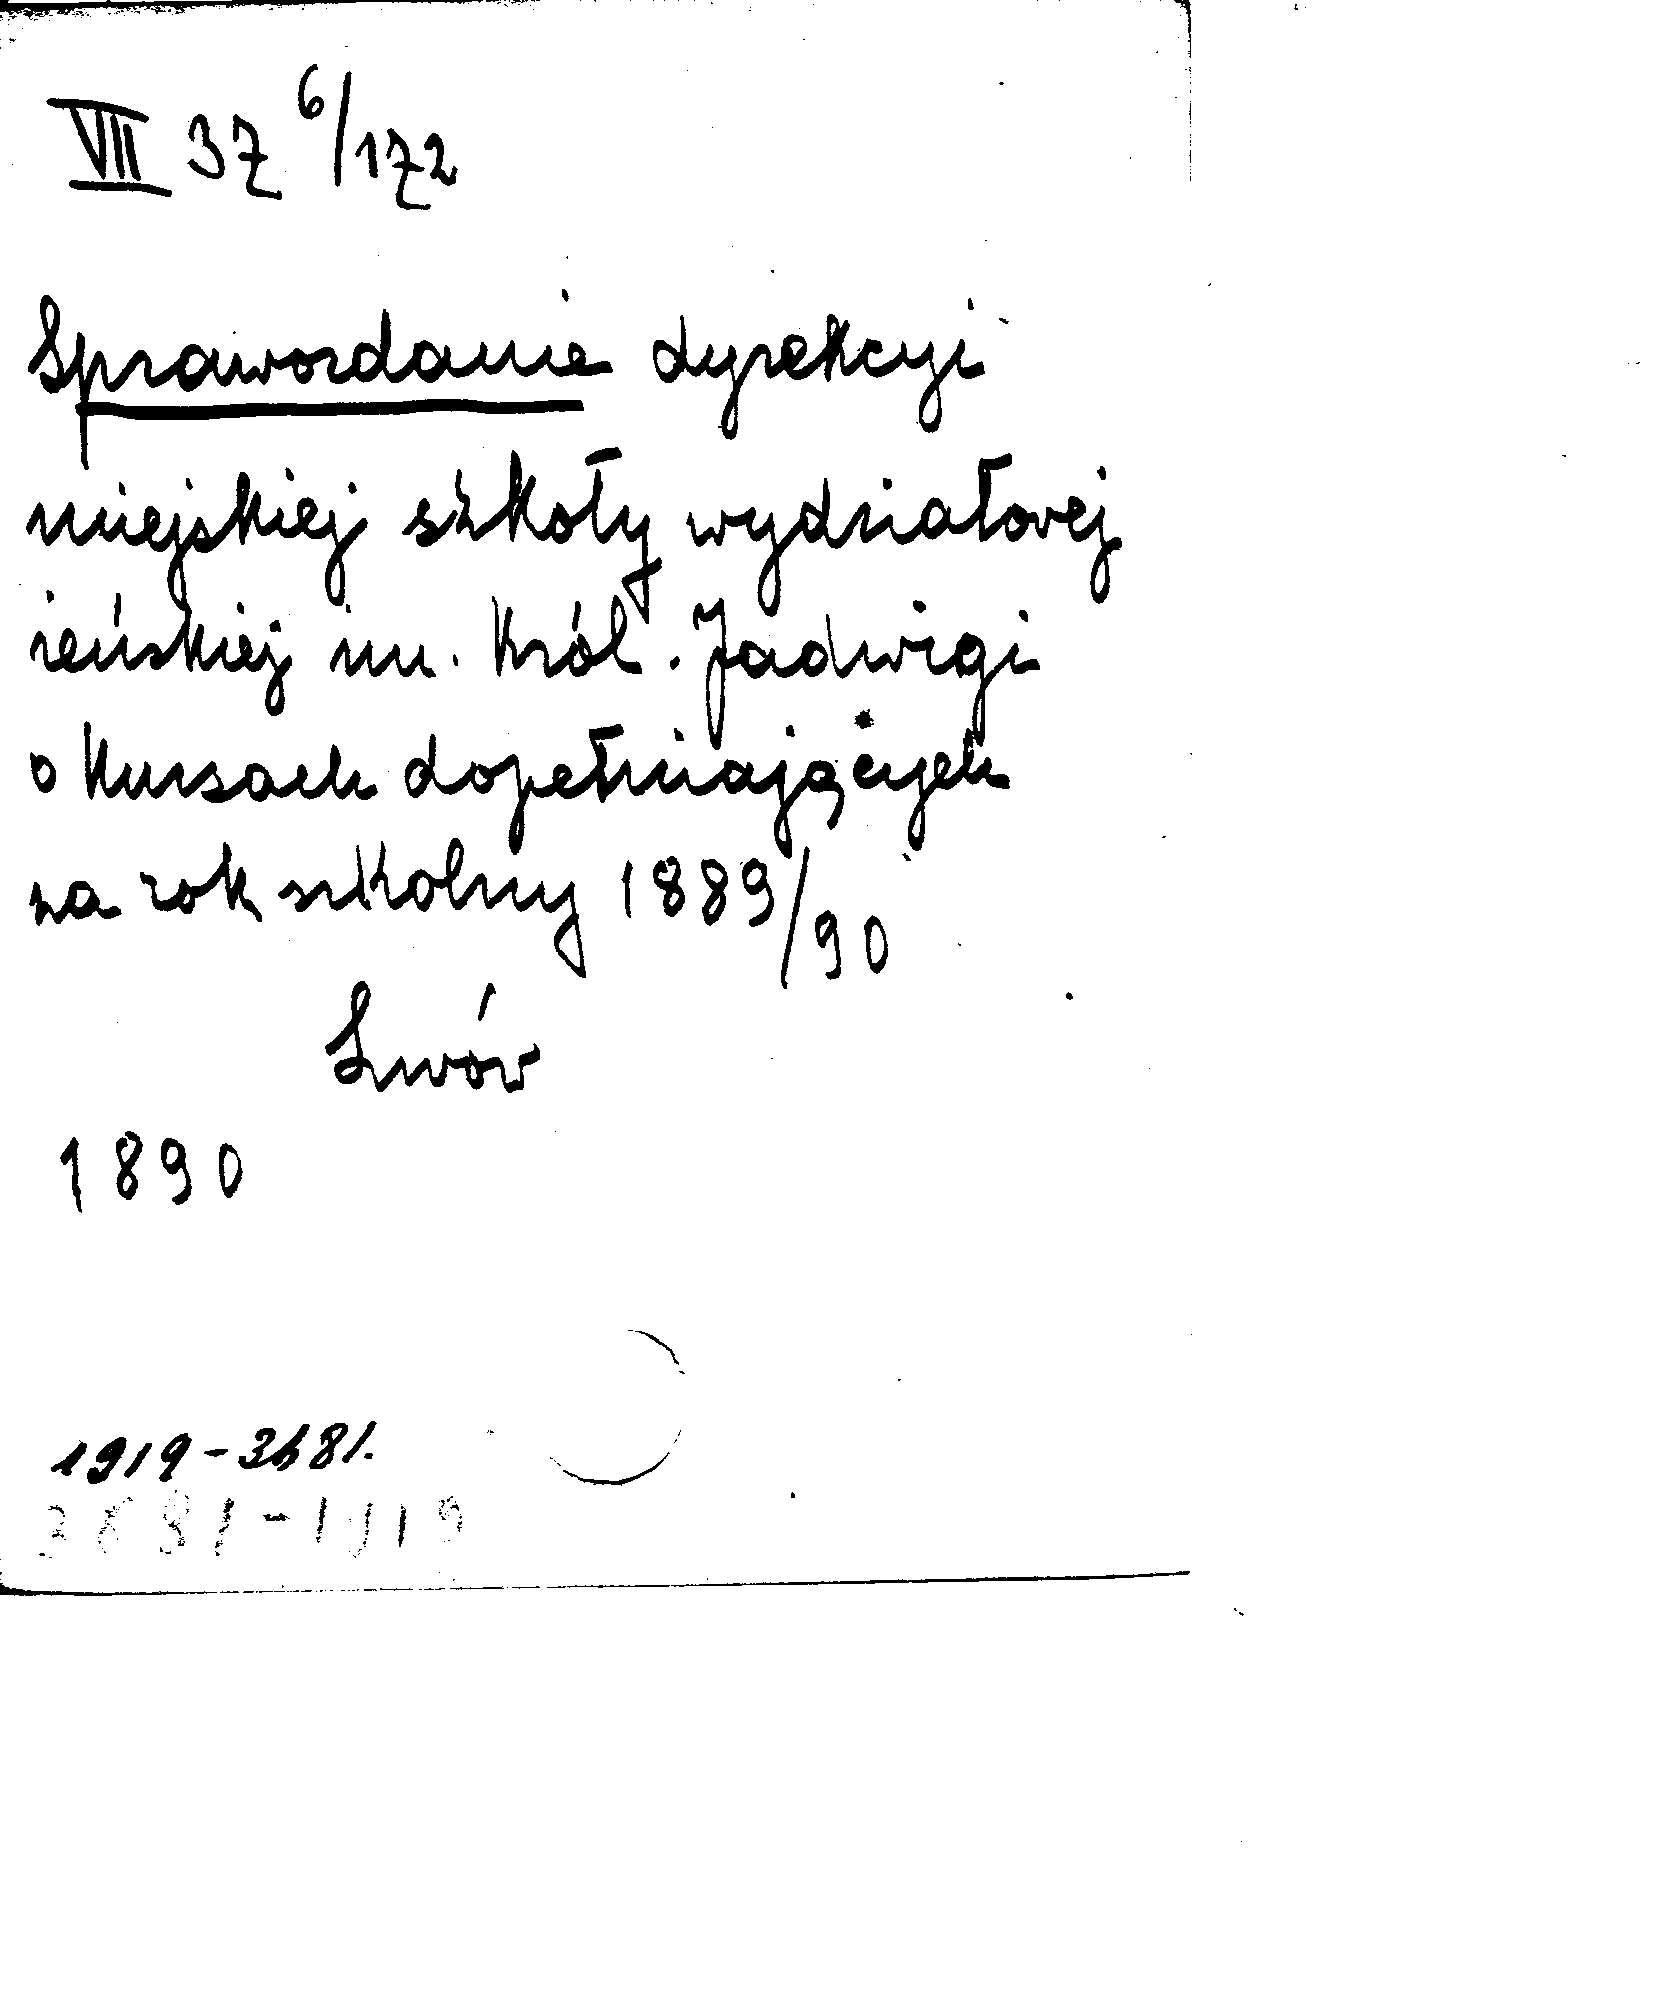 VII 37 6/172
Sprawozdanie dyrekcyi
miejskiej szkoły wydziałowej
żeńskiej im. Król. Jadwigi
o kursach dopełniających
za rok szkolny 1889/90
Lwów
1890
1919-3681.
3681-1919